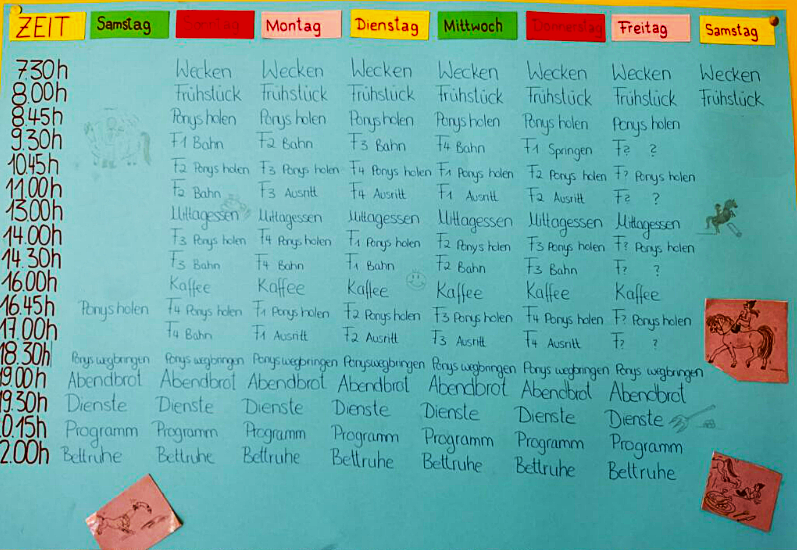 ZEIT Samstag Sonntag Montag Dienstag Mittwoch Donnerstag Freitag Samstag
7.30h Wecken Wecken Wecken Wecken Wecken Wecken Wecken
8.00h Frühstück Frühstück Frühstück Frühstück Frühstück Frühstück Frühstück
8.45h Ponys holen Ponys holen Ponys holen Ponys holen Ponys holen Ponys holen
9.30h F1 Bahn F2 Bahn F3 Bahn F4 Bahn F1 Springen F? ?
10.45h F2 Ponys holen F3 Ponys holen F4 Ponys holen F1 Ponys holen F2 Ponys holen F? Ponys holen
11.00h F2 Bahn F3 Ausritt F4 Ausritt F1 Ausritt F2 Ausritt F? ?
13.00h Mittagessen Mittagessen Mittagessen Mittagessen Mittagessen Mittagessen
14.00h F3 Ponys holen F4 Ponys holen F1 Ponys holen F2 Ponys holen F3 Ponys holen F? Ponys holen
14.30h F3 Bahn F4 Bahn F1 Bahn F2 Bahn F3 Bahn F? ?
16.00h Kaffee Kaffee Kaffee Kaffee Kaffee Kaffee
16.45h Ponys holen F4 Ponys holen F1 Ponys holen F2 Ponys holen F3 Ponys holen F4 Ponys holen F? Ponys holen
17.00h F4 Bahn F1 Ausritt F2 Ausritt F3 Ausritt F4 Ausritt F? ?
18.30h Ponys wegbringen Ponys wegbringen Ponys wegbringen Ponys wegbringen Ponys wegbringen Ponys wegbringen Ponys wegbringen
9.00h Abendbrot Abendbrot Abendbrot Abendbrot Abendbrot Abendbrot Abendbrot
9.30h Dienste Dienste Dienste Dienste Dienste Dienste Dienste
0.15h Programm Programm Programm Programm Programm Programm Programm
2.00h Bettruhe Bettruhe Bettruhe Bettruhe Bettruhe Bettruhe Bettruhe